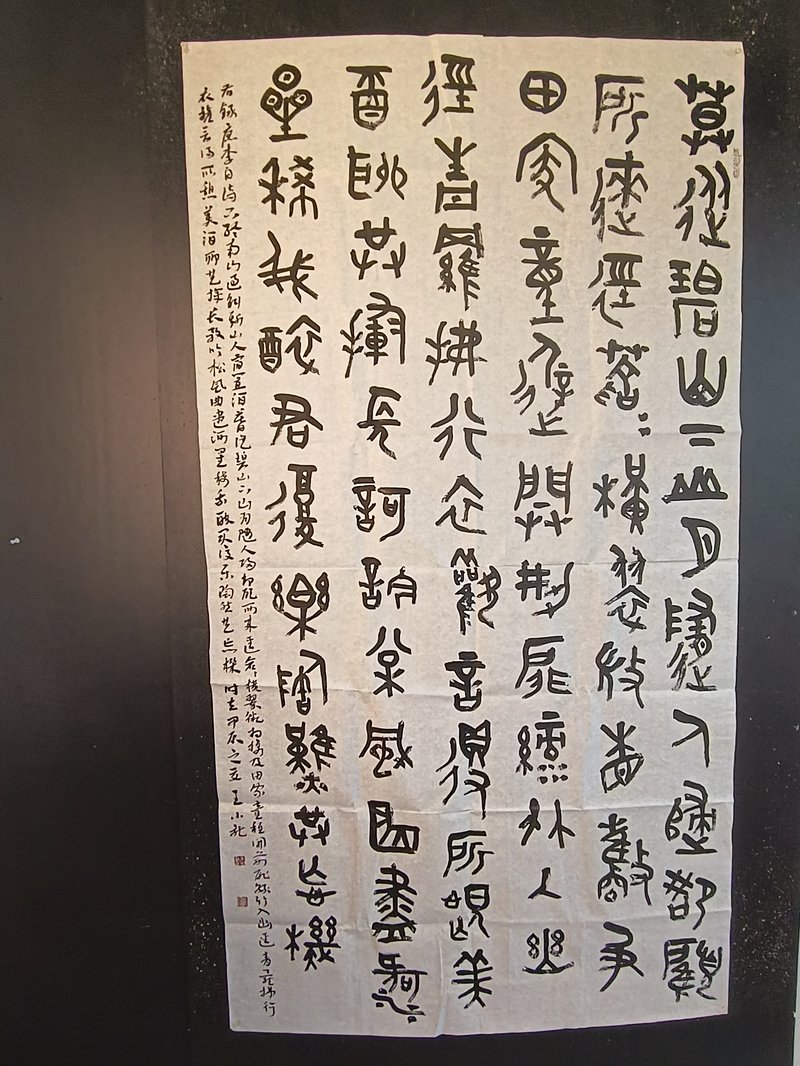 暮從碧山下山月隨人歸卻顧
所來徑蒼〻橫翠微相攜及
田家童稚開荊扉綠竹入幽
徑青蘿拂行衣歡言得所憩美
酒聊共揮長歌吟松風曲盡河
星稀我醉君復樂陶然共忘機
右錄唐李白詩下終南山過斛斯山人宿置酒暮從碧山下山月隨人歸却顧所來徑蒼〻橫翠微相攜及田家童稚開荊扉綠竹入幽徑青蘿拂行
衣歡言得所憩美酒聊共揮長歌吟松風曲盡河星稀我醉君復樂陶然共忘機 時在甲辰之夏 王小